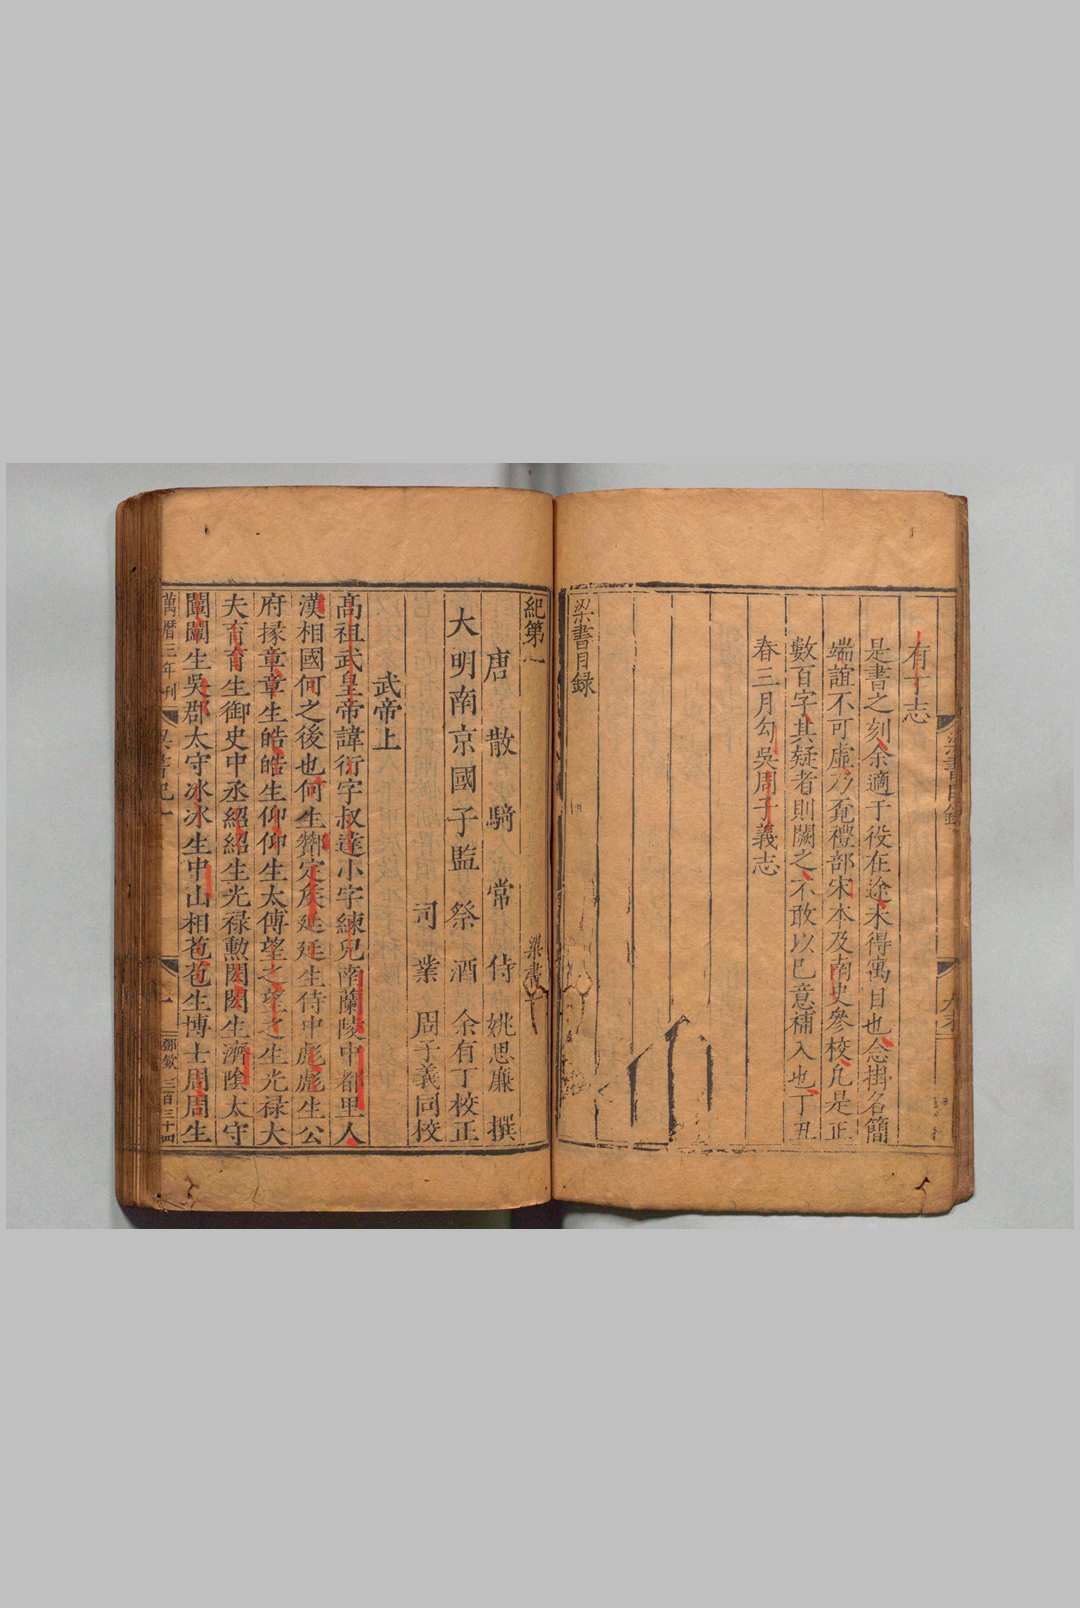 有丁志
是書之刻余適于役在途未得寓目也念掛名簡
端誼不可虛乃覔禮部宋本及南史叅校凡是正
數百字其疑者則闕之不敢以巳意補入也丁丑
春三月勾吳周子義志
梁書目録
紀第一
梁書一
唐散騎常侍姚思廉撰
大明南京國子監祭酒余有丁校正
司業周子義同校
武帝上
高祖武皇帝諱衍字叔達小字練兒南蘭陵中都里人
漢相國何之後也何生酇定侯延延生侍中彪彪生公
府掾章章生皓皓生仰仰生太傅望之望之生光禄大
夫育育生御史中丞紹紹生光禄勲閎閎生濟隂太守
闡闡生吳郡太守冰冰生中山相苞苞生博士周周生
萬曆三年刊
梁書紀一
一
鄧欽
三百三十四